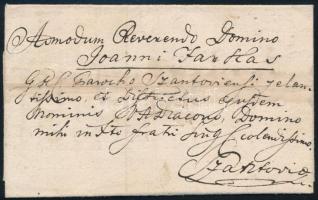 Admodum Reverendo Domino
Joanni Farkas
G R C Parocho Szantoviensi zelan-
tissimo, et Districtus ejusdem
Nominis V A Diacono, Domino
mihi in Xto fratri singl. colendissimo.
Szantoviae